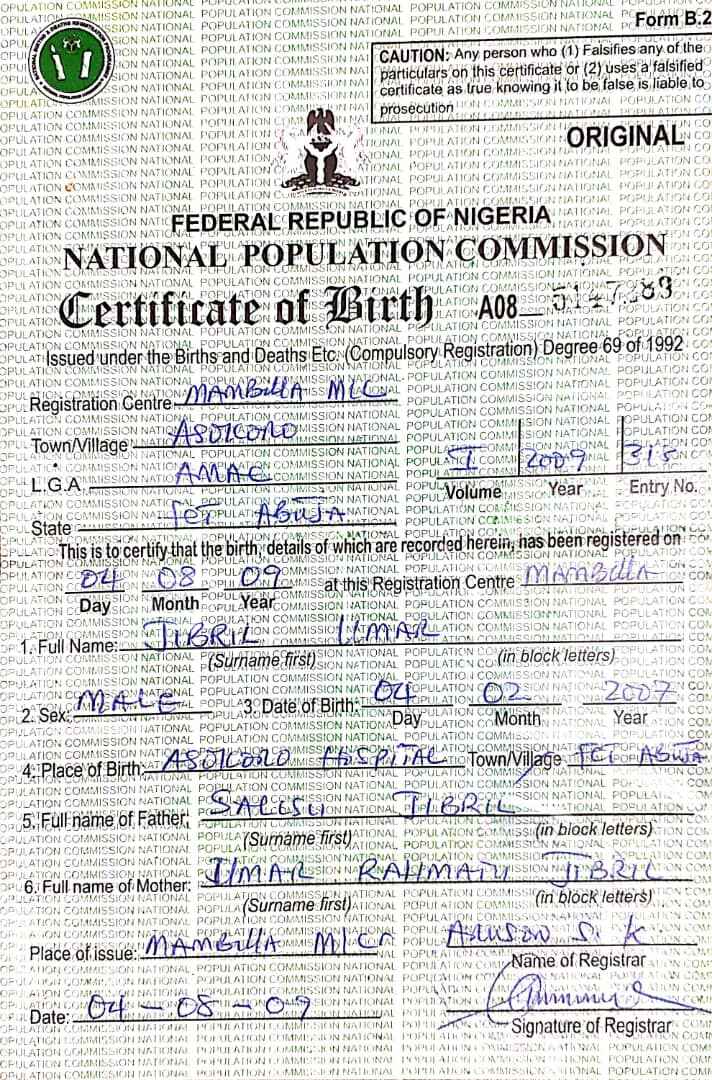 Form B.2
CAUTION: Any person who (1) Falsifies any of the
particulars on this certificate or (2) uses a falsified
certificate as true knowing it to be false is liable to
prosecution
ORIGINAL
FEDERAL REPUBLIC OF NIGERIA
NATIONAL POPULATION COMMISSION
Certificate of Birth A08
Issued under the Births and Deaths Etc. (Compulsory Registration) Degree 69 of 1992
Registration Centre MAMBILLA
Town/Village ASOKORO
L.G.A. AMAC
I 2009 315
Volume Year Entry No.
State FCT ABUJA
This is to certify that the birth, details of which are recorded herein, has been registered on
04 08 09 at this Registration Centre MAMBILLA
Day Month Year
1. Full Name: JIBRIL UMAR
(Surname first) (in block letters)
2. Sex: MALE 3. Date of Birth: 04 02 2007
Day Month Year
4. Place of Birth: ASOKORO HOSPITAL Town/Village FCT ABUJA
5. Full name of Father: SALISU JIBRIL
(Surname first) (in block letters)
6. Full name of Mother: UMAR RAHMATU JIBRIL
(Surname first) (in block letters)
Place of issue: MAMBILLA S. K
Name of Registrar
Date: 04-08-09
Signature of Registrar